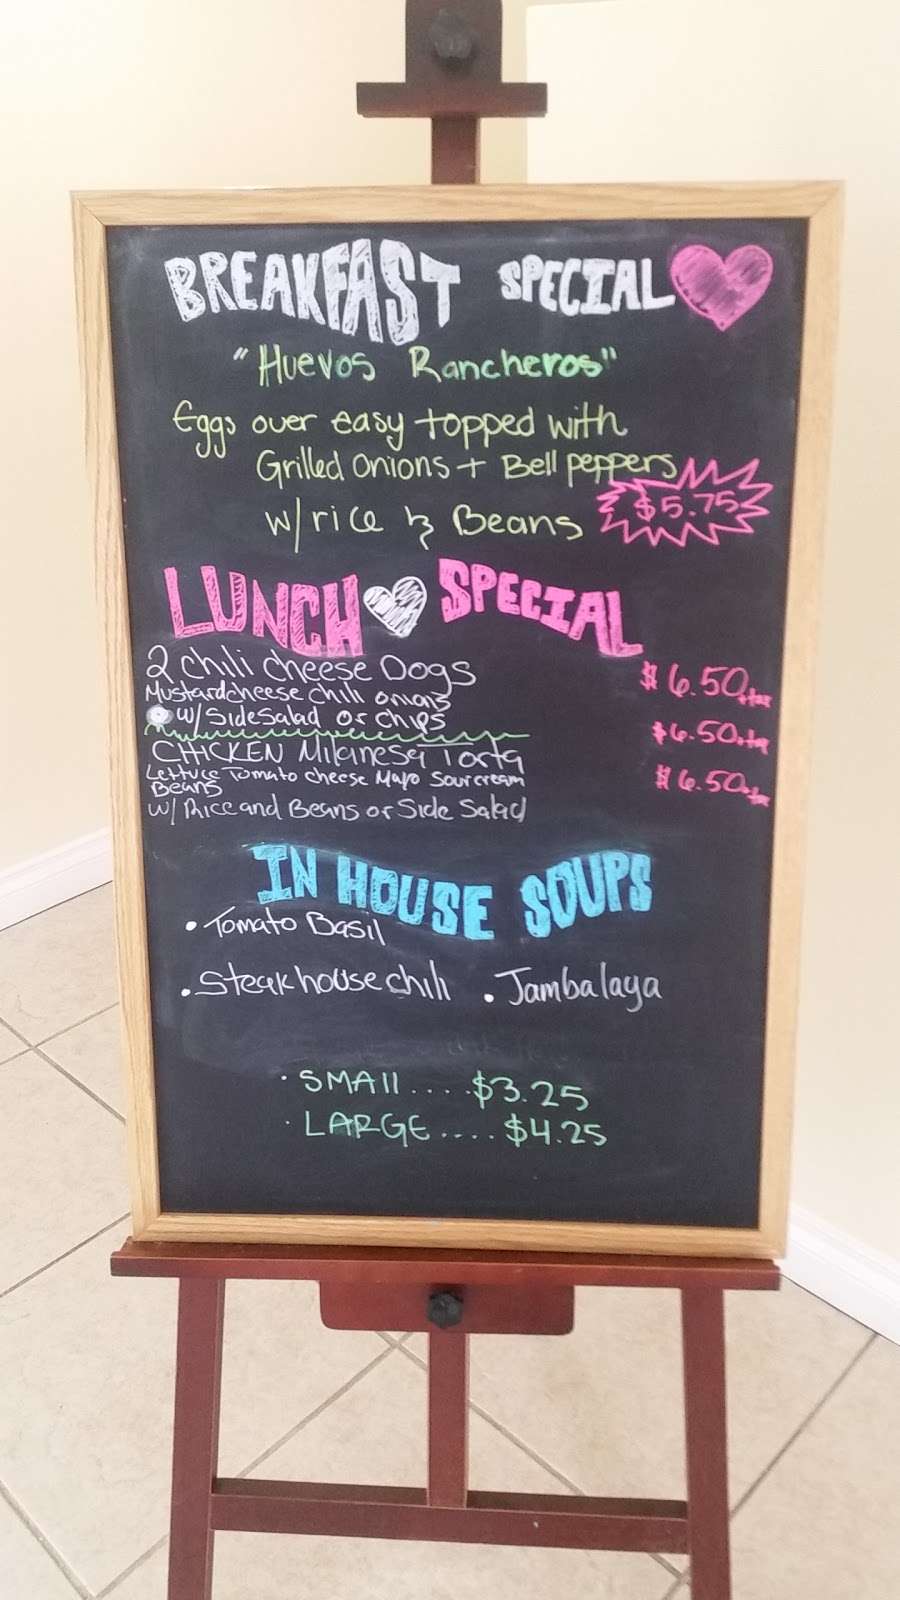 BREAKFAST SPECIAL
"Huevos Rancheros"
Eggs over easy topped with
Grilled Onions + Bell peppers
w/rice & Beans $5.75
LUNCH SPECIAL
2 chili cheese Dogs $6.50+tax
Mustard cheese chili onions
w/ Side Salad or chips $6.50+tax
CHICKEN Milanesa Torta
Lettuce Tomato cheese Mayo Sour cream $6.50+tax
Beans
w/ Rice and Beans or Side Salad
IN HOUSE SOUPS
• Tomato Basil
• Steak house chili • Jambalaya
· SMAll .... $3.25
· LARGE .... $4.25